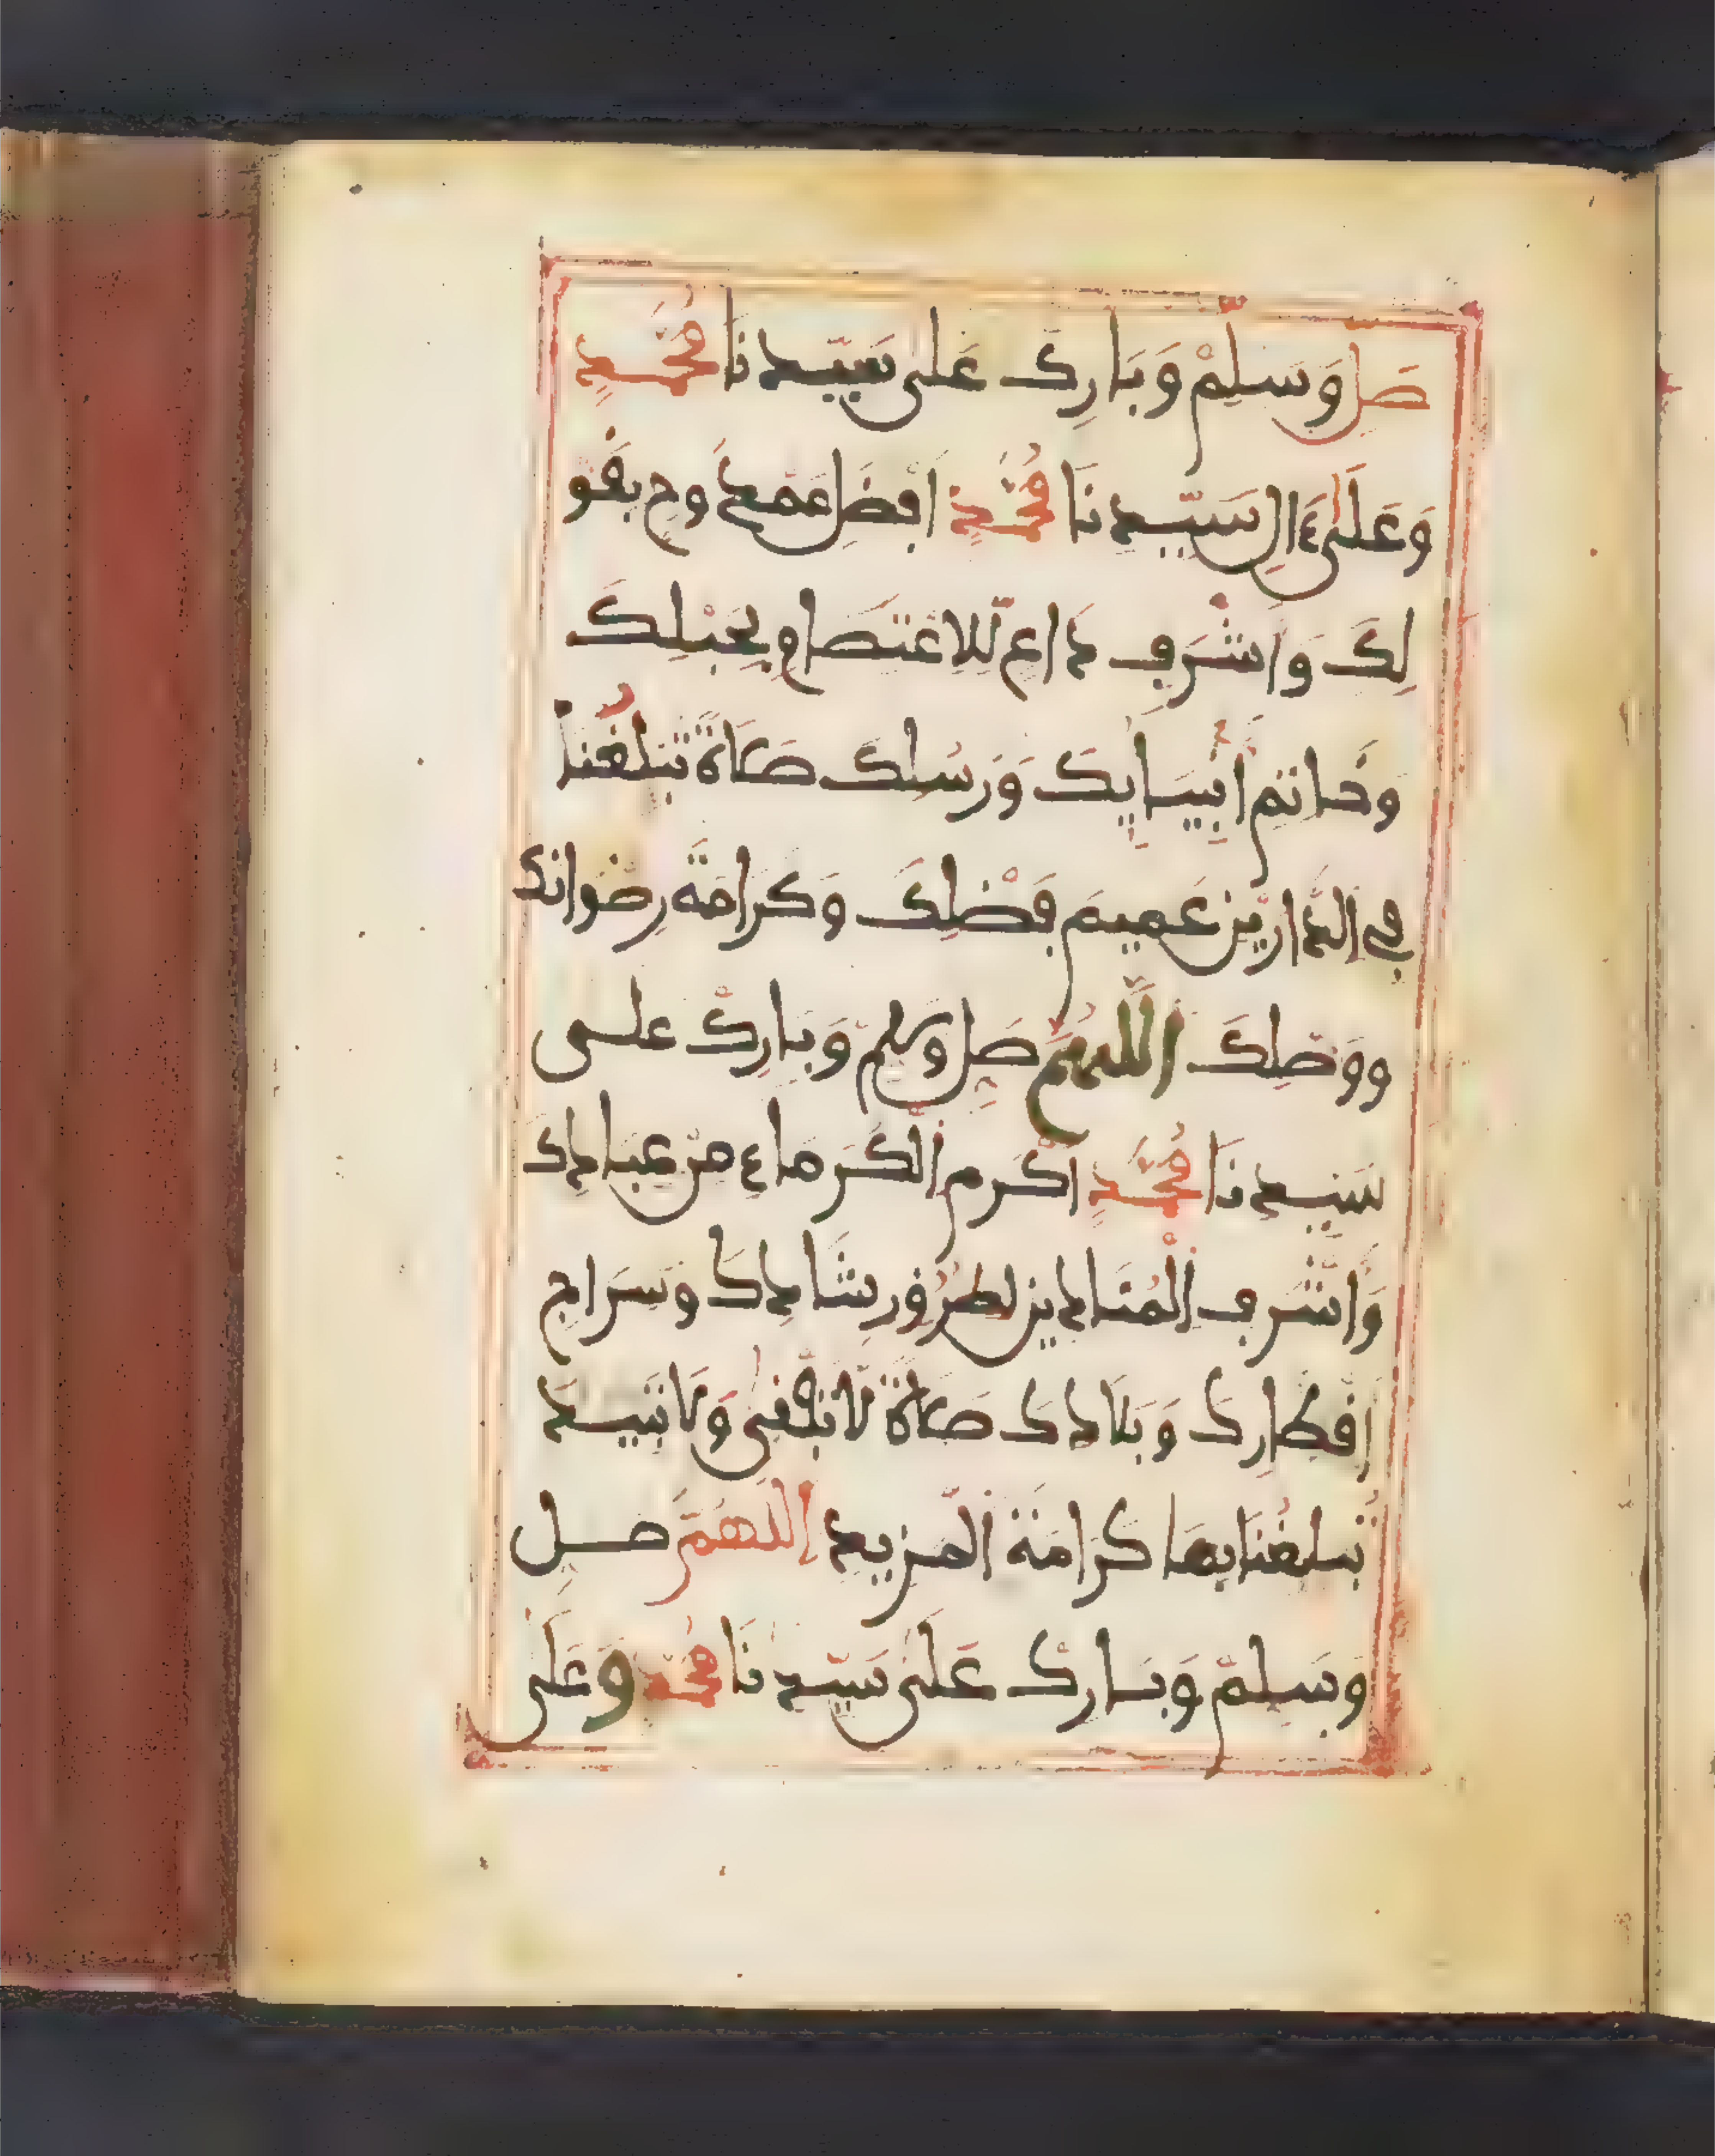 صَلِّ وَسَلِّمْ وَبَارِكْ عَلَى سَيِّدِنَا مُحَمَّدٍ
وَعَلَى ءَالِ سَيِّدِنَا مُحَمَّدٍ اَفْضَلِ مَمْدُوحٍ بِقَوْ
لِكَ وَاَشْرَفِ دَاعٍ لِّلِاعْتِصَامِ بِحَبْلِكَ
وَخَاتِمِ أَنْبِيَايِكَ وَرُسُلِكَ صَلَاةً تُبَلِّغُنَا
فِي الدَّارَيْنِ عَمِيمَ فَضْلِكَ وَكَرَامَةَ رِضْوَانِكَ
وَوَصْلِكَ اَللَّهُمَّ صَلِّ وَسَلِّمْ وَبَارِكْ عَلَى
سَيِّدِنَا مُحَمَّدٍ اَكْرَمِ الْكُرَمَاءِ مِنْ عِبَادِكَ
وَاَشْرَفِ الْمُنَادِينَ لِطُرُقِ رَشَادِكَ وَسِرَاجِ
اَقْطَارِكَ وَبِلَادِكَ صَلَاةً لَا تَفْنَى وَلَا تَبِيدُ
تُبَلِّغُنَا بِهَا كَرَامَةَ الْمَزِيدِ اَللَّهُمَّ صَلِّ
وَسَلِّمْ وَبَارِكْ عَلَى سَيِّدِنَا مُحَمَّدٍ وَعَلَى